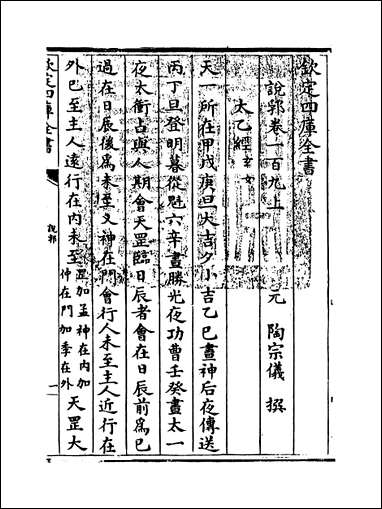 欽定四庫全書
說郛卷一百九上
元 陶宗儀 撰
太乙經
天一所在甲戊庚旦大吉夕小吉乙巳晝神后夜傳送
丙丁旦登明暮從魁六辛晝勝光夜功曹壬癸晝太一
夜太衝占與人期會天罡臨日辰者會在日辰前為已
過在日辰後為未至又神在門會行人未至主人近行在
外已至主人遠行在內未至罡加孟神在內加仲在門加季在外天罡大
欽定四庫全書
說郛
一